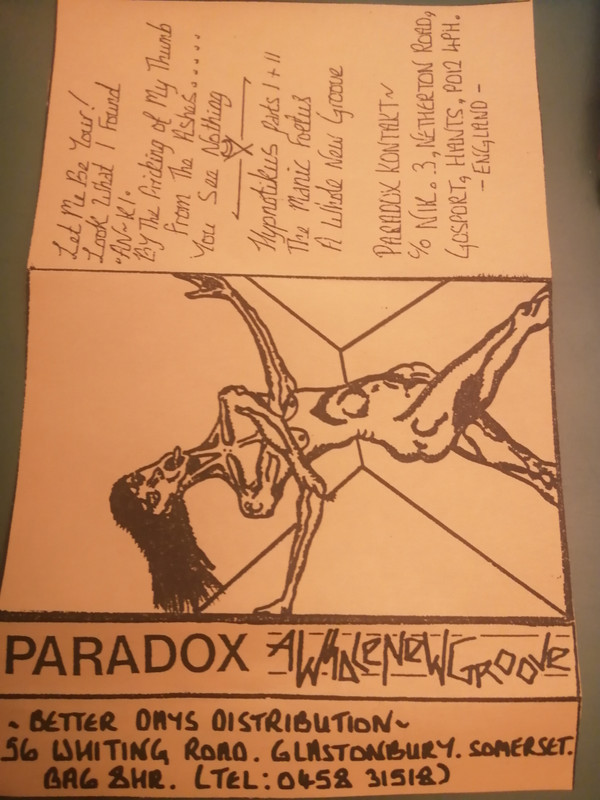 Let Me Be Your!
Look What I Found
"AN-K1.
By The Pricking of My Thumb
From The Ashes.....
You See Nothing
Hypnotikus Parts I + II
The Manic Foetus
A Whole New Groove
PARADOX KONTAKT~
c/o NIK. 3, NETHERTON ROAD,
GOSPORT, HANTS, PO12 4PH.
- ENGLAND -
PARADOX A WHOLE NEW GROOVE
~ BETTER DAYS DISTRIBUTION ~
56 WHITING ROAD. GLASTONBURY. SOMERSET.
BA6 8HR. (TEL: 0458 31518)